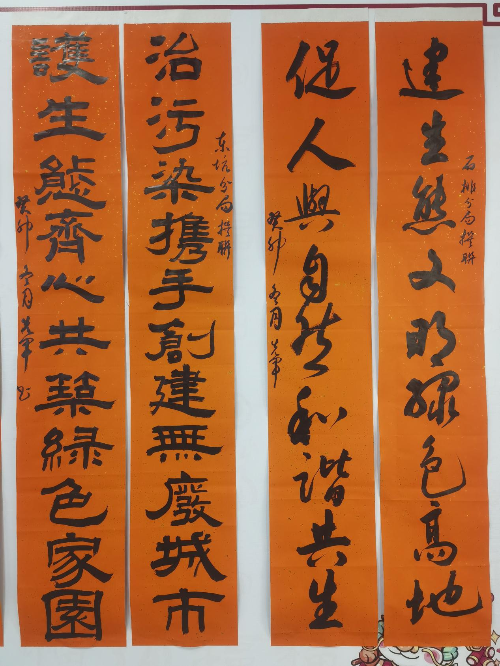 建生態文明绿色高地
石排分局撰聯
促人與自然和諧共生
癸卯冬月先軍
治污染携手創建無廢城市
东坑分局撰聯
護生態齊心共築緑色家園
癸卯冬月先軍书